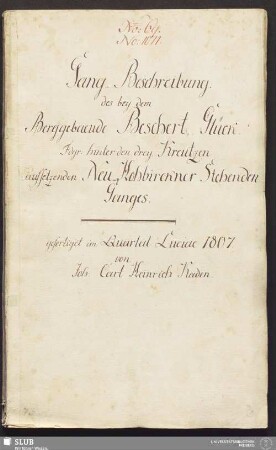 No: 69.
No. 1071.
Gang Beschreibung
des bey dem
Berggebaeude Beschert Glück
Fdgr. hinter den drey Kreutzen
aufsetzenden Neu Hohbirkner Stehenden
Ganges.
gefertiget im Quartal Luciae 1807
von
Joh. Carl Heinrich Kaden.
SLUB
Wir führen Wissen.
UNIVERSITÄTSBIBLIOTHEK
FREIBERG